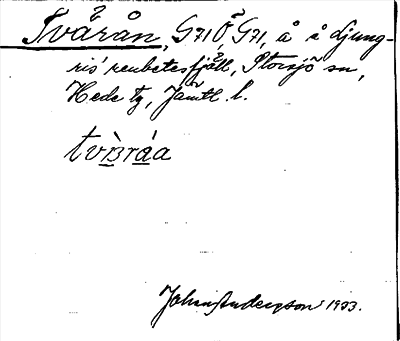 Tvärån, G71Ö, G71, å i Ljung-
ris' renbetesfjäll, Storsjö sn,
Hede tg, Jämtl. l.
tvɪ̀ʙráa
Johan Anderson 1933.